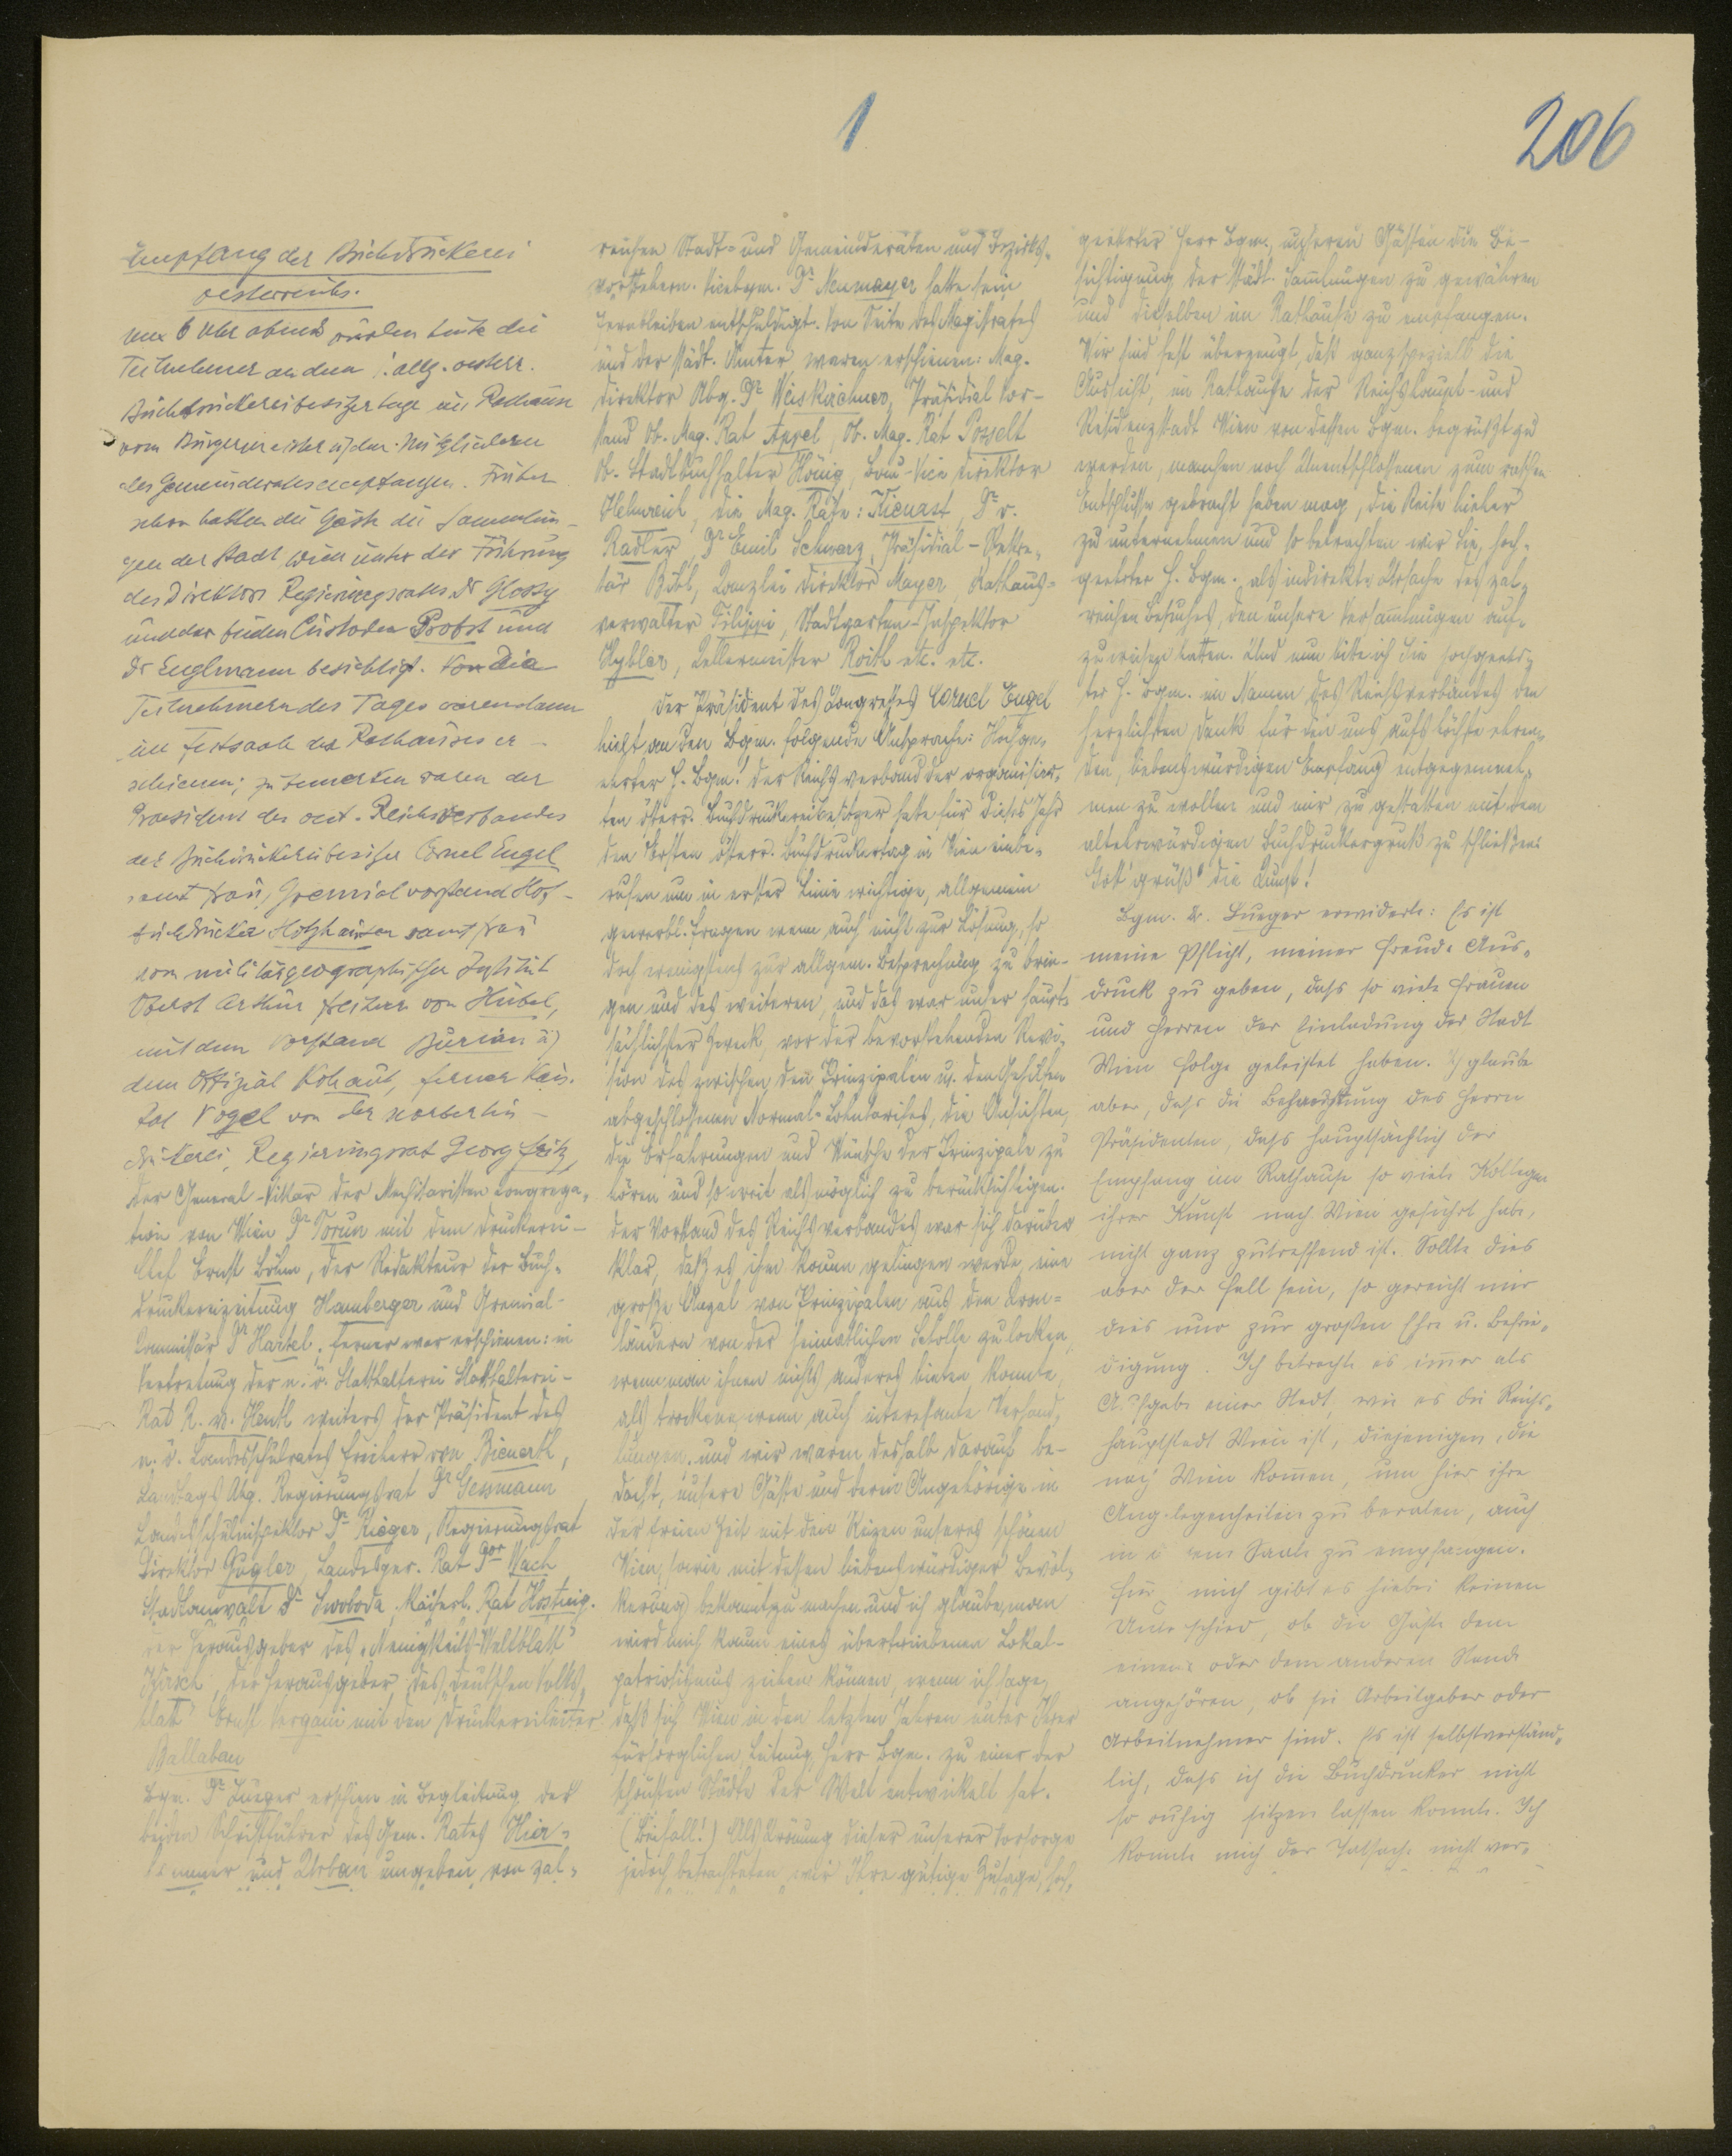 1
206
Empfang der Buchdruckerei
oesterreichs.
um 6 Uhr abends wurden heute die
Teilnehmer an dem I. allg. oesterr.
Buchdruckereibesitzertage im Rathaus
vom Bürgermeister u. den Mitgliedern
des Gemeinderates empfangen. Früher
schon hatten die Gäste die Sammlun-
gen der Stadt Wien unter der Führung
des Direktors Regierungsrates Dr Glossy
und der beiden Custoden Probst und
Dr Englmann besichtigt. Von die
Teilnehmern des Tages waren dann
im Festsaale des Rathauses er-
schienen; zu bemerken waren der
Praesident des oest. Reichsverbandes
der Buchdruckereibesitzer Cornel Engel
samt Frau, Gremialvorstand Hof-
buchdrucker Holzhausen samt Frau
vom militärgeographischen Institut
Oberst Arthur Freiherr von Hübel,
mit dem Vorstand Burian u)
dem Offizial Kohaut, ferner Kais.
Rat Vogel von der Norbertus-
druckerei, Regierungsrat Georg Fritz,
der General-Vikar der Mechitaristen congrega-
tion von Wien Dr Torun mit dem Druckerei-
Chef Ernst Böhm, der Redakteur der Buch-
druckereizeitung Hamberger und Gremial-
Commissär Dr Hartel, ferner war erschienen: in
Vertretung der n. ö. Statthalterei Statthalterei-
Rat R. v. Hentl weiters der Präsident des
n. ö. Landesschulrates Freiherr von Bienerth,
Landtags Abg. Regierungsrat Dr Gessmann
Landesschulinspektor Dr Rieger, Regierungsrat
Direktor Gugler, Landesger. Rat Dor Wach
Stadtanwalt Dr Swoboda, Kaiserl. Rat Hostnig.
der Herausgeber des „Neuigkeits-Weltblatt"
Hirsch, der Herausgeber des „Deutschen Volks-
blatt" Ernst Vergani mit dem Druckereileiter
Ballaban
Bgm. Dr Lueger erschien in Begleitung der
beiden Schriftführer des Gem. Rates Hier-
hammer und Urban umgeben von zal-
reichen Stadt- und Gemeinderäten und Bezirks-
vorstehern. Vicebgm. Dr Neumayer hatte sein
Fernbleiben entschuldigt. Von Seite des Magistrates
und der städt. Ämter waren erschienen: Mag.
Direktor Abg. Dr Weiskirchner, Präsidial Vor-
stand Ob. Mag. Rat Appel, Ob. Mag. Rat Posselt
Ob. Stadtbuchhalter König, Bau-Vice Direktor
Helmreich, die Mag. Räte: Kienast, Dr v.
Radler, Dr Emil Schwarz, Präsidial-Sekre-
tär Bibl, Kanzlei Direktor Mayer, Rathaus-
verwalter Filippi, Stadtgarten-Inspektor
Hybler, Kellermeister Roith etc. etc.
Der Präsident des Kongresses Cornel Engel
hielt an den Bgm. folgende Ansprache: Hochge-
ehrter H. Bgm.! Der Reichsverband der organisier-
ten österr. Buchdruckereibesitzer hatte für dieses Jahr
den Ersten österr. Buchdruckertag in Wien einbe-
rufen um in erster Linie wichtige, allgemein
gewerbl. Fragen wenn auch nicht zur Lösung, so
doch wenigstens zur allgem. Besprechung zu brin-
gen und des weiteren, und das war unser haupt-
sächlichster Zweck, vor der bevorstehenden Revi-
sion des zwischen den Prinzipalen u. den Gehilfen
abgeschlossenen Normal-Lohntarifes, die Ansichten
die Erfahrungen und Wünsche der Prinzipale zu
hören und so weit als möglich zu berücksichtigen.
Der Vorstand des Reichsverbandes war sich darüber
klar, daß es ihm kaum gelingen werde, eine
große Anzal von Prinzipalen aus den Kron-
ländern von der heimatlichen Scholle zu locken,
wenn man ihnen nichts anderes bieten konnte,
als trockene, wenn auch interesante Verhand-
lungen, und wir waren deshalb darauf be-
dacht, unsere Gäste und deren Angehörige in
der freien Zeit mit den Reizen unseres schönen
Wien, sowie mit dessen liebenswürdiger Bevöl-
kerung bekannt zu machen und ich glaube, man
wird mich kaum eines übertriebenen Lokal-
patriotismus zeihen können, wenn ich sage,
daß sich Wien in den letzten Jahren unter Ihrer
fürsorglichen Leitung, Herr Bgm. zu einer der
schönsten Städte der Welt entwickelt hat.
(Beifall!) Als Krönung dieser unserer Vorsorge
jedoch betrachteten wir Ihre gütige Zusage, hoch-
geehrter Herr Bgm. unseren Gästen die Be-
sichtigung der städt. Samlungen zu gewähren
und dieselben im Rathause zu empfangen.
Wir sind fest überzeugt, daß ganz speziell die
Aussicht, im Rathause der Reichshaupt- und
Residenzstadt Wien von dessen Bgm. begrüßt zu
werden, manchen noch Unentschlossenen zum raschen
Entschlusse gebracht haben mag, die Reise hieher
zu unternehmen und so betrachten wir Sie, hoch-
geehrter H. Bgm. als indirekte Ursache des zal-
reichen Besuches, den unsere Versamlungen auf-
zuweisen hatten. Und nun bitte ich Sie hochgeehr-
ter H. Bgm. im Namen des Reichsverbandes den
herzlichsten Dank für den uns aufs höchste ehren-
den, liebenswürdigen Empfang entgegenneh-
men zu wollen und mir zu gestatten mit dem
altehrwürdigen Buchdruckergruß zu schließen:
Gott grüß' die Kunst!
Bgm. Dr. Lueger erwiderte: Es ist
meine Pflicht, meiner Freude Aus-
druck zu geben, dass so viele Frauen
und Herren der Einladung der Stadt
Wien Folge geleistet haben. Ich glaube
aber, dass die Behauptung des Herrn
Präsidenten, dass hauptsächlich der
Empfang im Rathause so viele Kollegen
ihrer Kunst nach Wien geführt habe,
nicht ganz zutreffend ist. Sollte dies
aber der Fall sein, so gereicht mir
dies nur zur großen Ehre u. Befrie-
digung. Ich betrachte es immer als
Aufgabe einer Stadt, wie es die Reichs-
hauptstadt Wien ist, diejenigen, die
nach Wien komen, um hier ihre
Angelegenheiten zu beraten, auch
in einem Saale zu empfangen.
Für mich gibt es hiebei keinen
Unterschied, ob die Gäste dem
einen oder dem anderen Stande
angehören, ob sie Arbeitgeber oder
Arbeitnehmer sind. Es ist selbstverständ-
lich, dass ich die Buchdrucker nicht
so ruhig sitzen lassen konnte. Ich
konnte mich der Tatsache nicht ver-